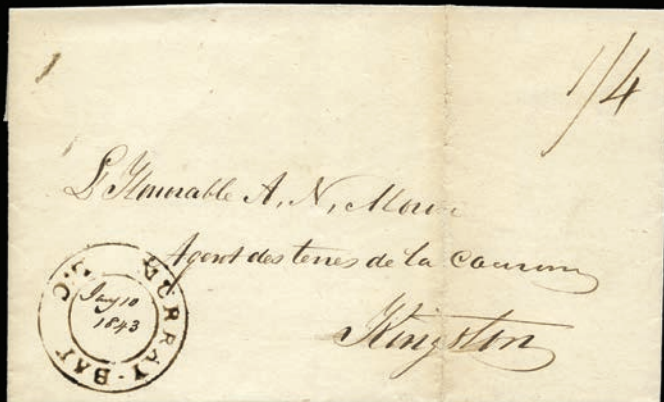 1/4
L'Honorable A. N. Morin
Agent des terres de la Couronne
Kingston
MURRAY-BAY L.C.
Jany 10
1843